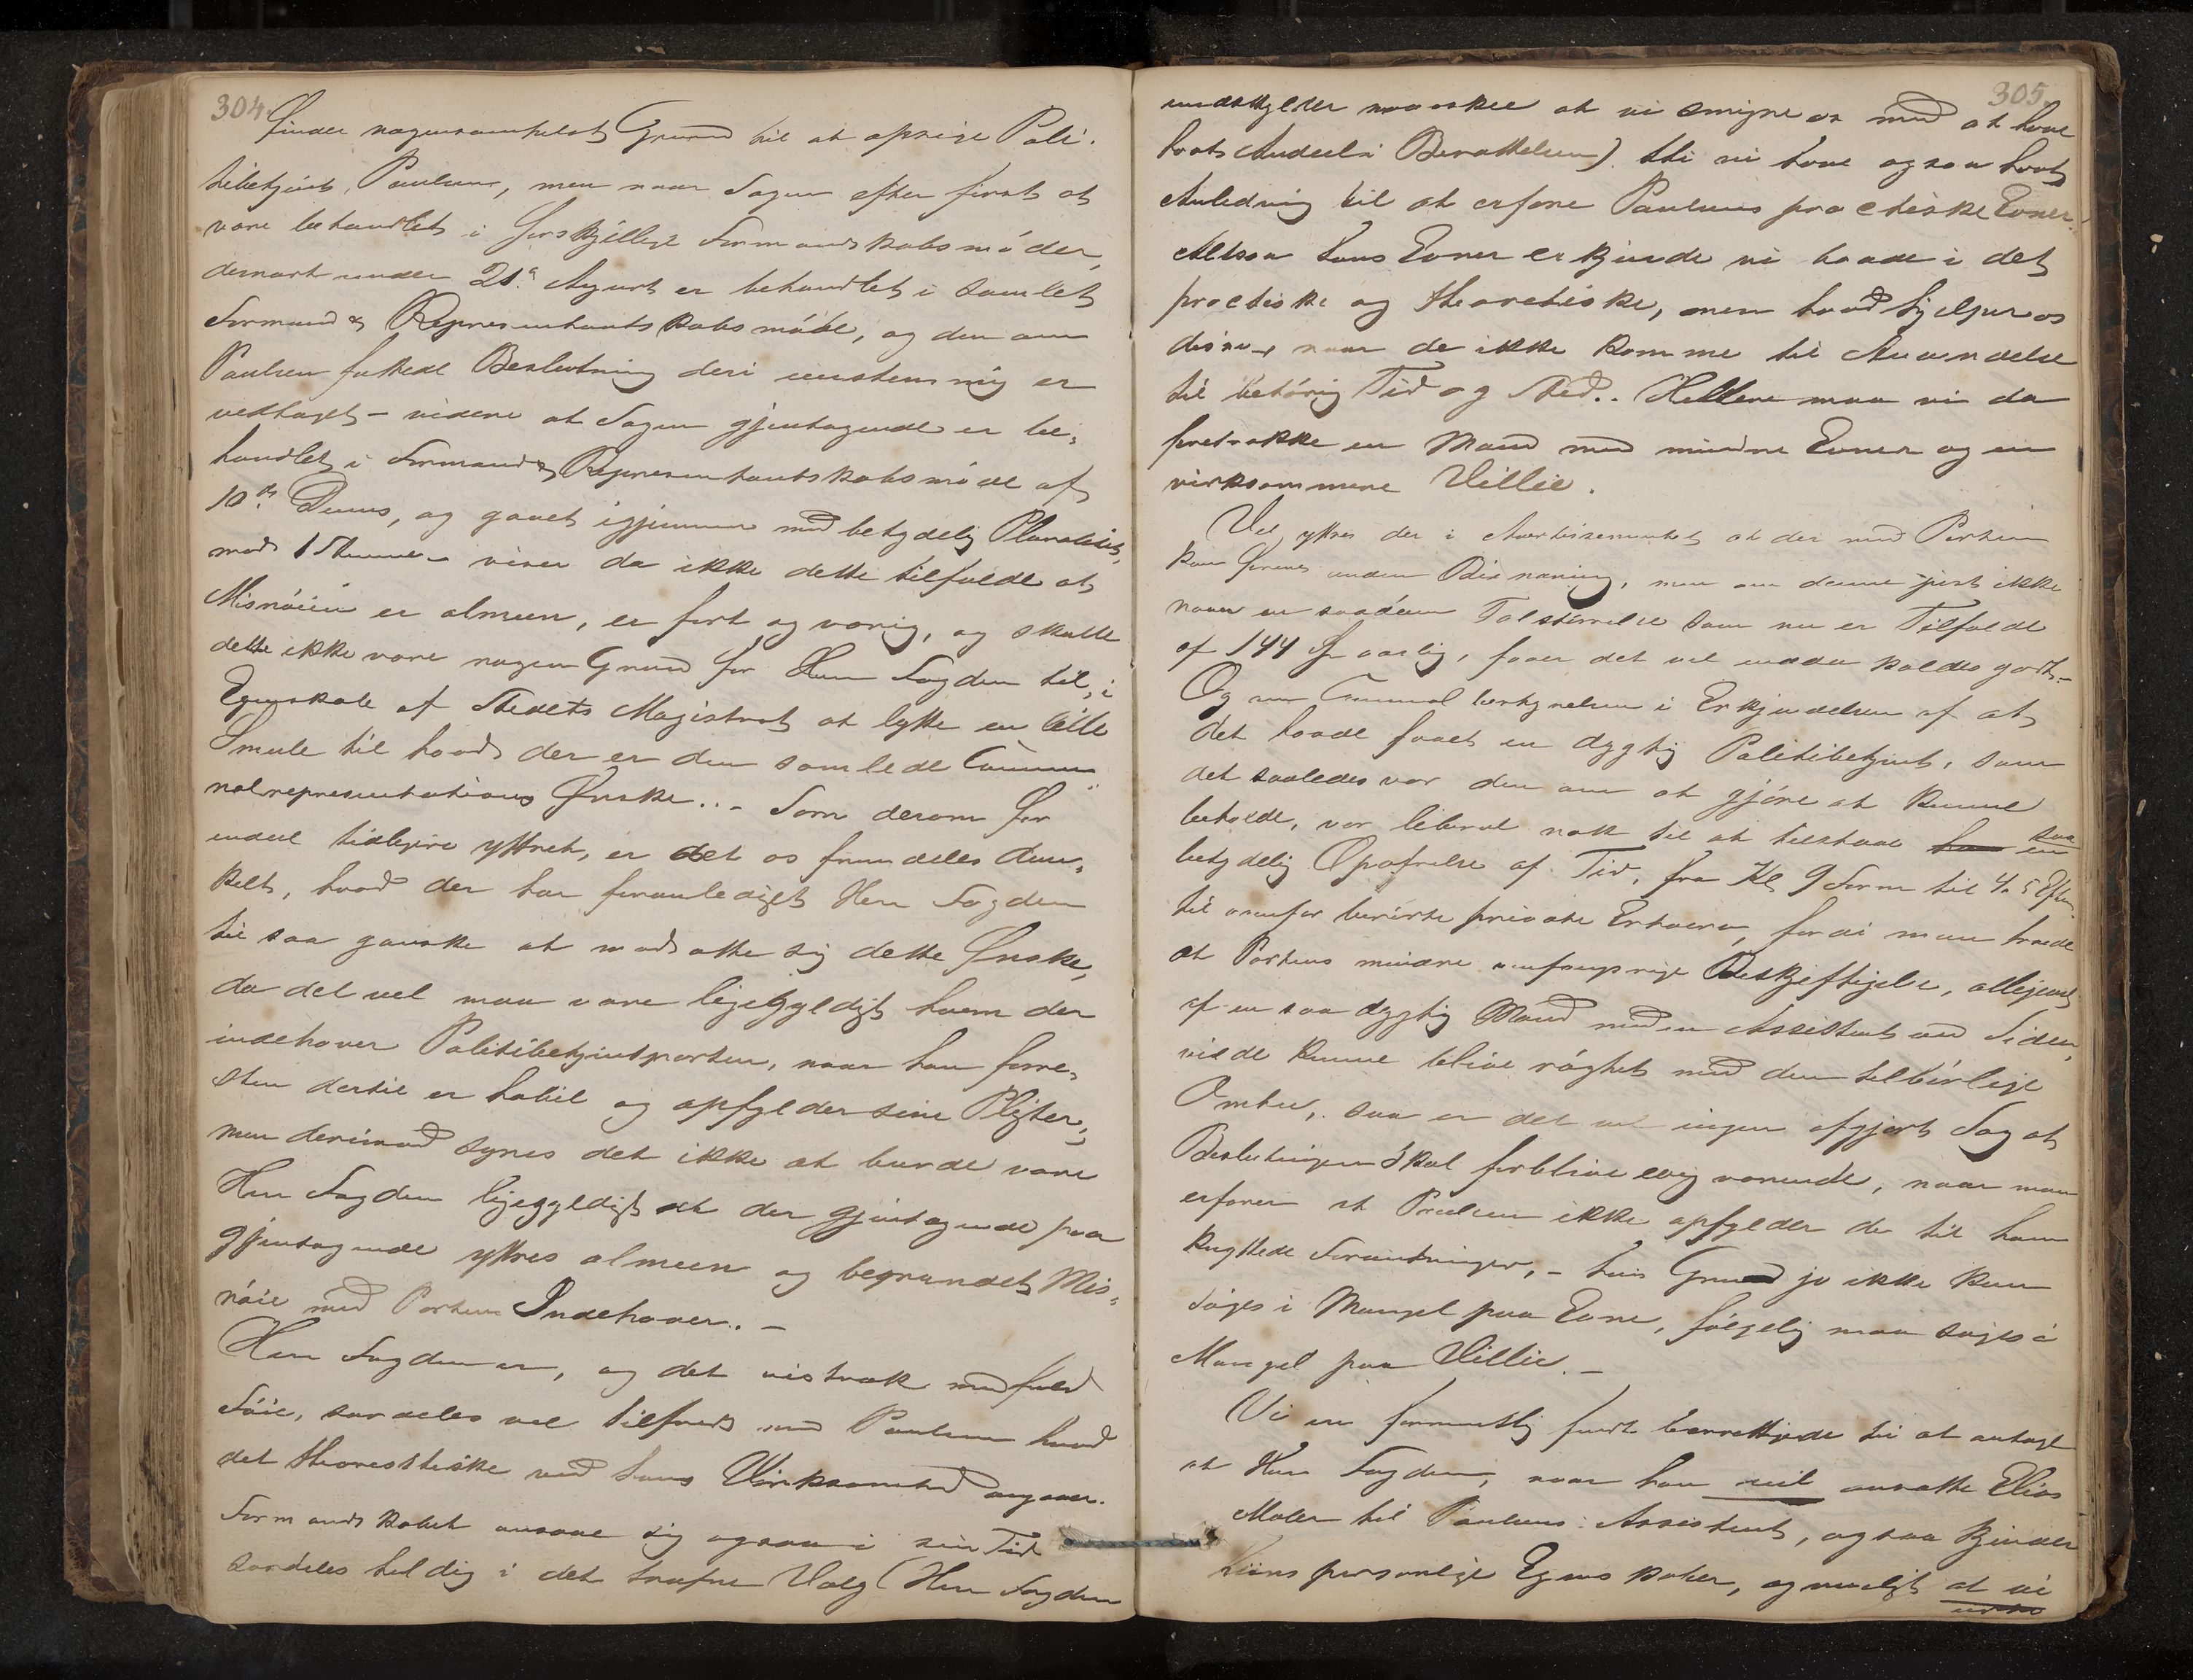 304
finder nogensomhelst Grund til at opsige Poli-
tibetjent Paulsen, men naar Sagen efter først at
være behandlet i forskjellige Formandskabsmöder,
dernæst under 21. August er behandlet i samlet
Formand & Representantskabsmöde, og den om
Paulsen fattede Beslutning deri eenstemmig er
vedtaget – videre at Sagen gjentagende er be-
handlet i Formand & Representantskabsmöde af
10de Dennes, og gaaet igjennem med betydelig Pluralitet,
mod 1 Stemme – viser da ikke dette tilfulde at
Misnöien er almeen, er fort og varig, og skulde
dette ikke være nogen Grund for Herr Fogden til, i
Egenskab af Stedets Magistrat at lytte en lille
Smule til hvad der er den samlede Commu-
nalrepresentations Ønske. . – Som derom for
endeel tidligere yttret, er det os fremdeles dun-
kelt, hvad der har foranlediget Herr Fogden
til saa ganske at modsætte sig dette Ønske,
da det vel maa være ligegyldigt hvem der
indehaver Politibetjentposten, naar han forre-
sten dertil er habil og opfylder sine Pligter;
men derimod synes det ikke at burde være
Herr Fogden ligegyldigt at der gjentagende paa
gjentagende yttres almeen og begrundet Mis-
nöie med Postens Indehaver. –
Herr Fogden er, og det vistnok med fuld
Föie, særdeles vel tilfreds med Paulsen hvad
det theoretiske ved hans Virksomhed angaaer.
Formandskabet ansaae sig ogsaa i sin Tid
særdeles heldig i det trufne Valg (Herr Fogden
305.
undskylder maaskee at vi smigre os med at have
havt Andeel i Berettelsen). thi vi have ogsaa havt
Anledning til at erfare Paulsens practiske Evner.
Altsaa hans Evner erkjende vi baade i det
practiske og theoretiske, men hvad hjelper os
disse – naar de ikke komme til Anvendelse
til behörig Tid og Sted. . Hellere maa vi da
foretrække en Mand med mindre Evner og en
virksommere Villie.
Vel yttres der i Avertissementet at der med Posten
kan forenes anden Bi næring, men om denne just ikke
naaer en saadan Talstørrelse som nu er Tilfælde
af 144 Spd aarlig, faaer det vel endda kaldes godt. –
Og om Communalbestyrelsen i Erkjendelsen af at
det havde faaet en dygtig Politibetjent, som
det saaledes var den om at gjöre at kunne
beholde, var liberal nok til at tilstaae ham en saa
betydelig Opofrelse af Tid, fra Kl 9 Form til 4 a 5 Efterm
til ovenfor berörte private Erhverv, fordi man troede
at Postens mindre omfangsrige Beskjeftigelse, alligevel
af en saa dygtig Mand med en Assistent ved Siden,
vilde kunne blive rögtet med den tilbörlige
Omhu, saa er det vel ingen afgjort Sag at
Beslutningen skal forblive evig varende, naar man
erfarer at Paulsen ikke opfylder de til ham
knyttede Forventninger, – hvis Grund jo ikke kan
söges i Mangel paa Evne, fölgelig maa söges i
Mangel paa Villie. –
Vi ere formentlig fuldt berettigede til at antage
at Herr Fogden, naar han vil ansætte Elias
Moler til Paulsens Assistent, ogsaa kjender
hans personlige Egenskaber, og muligt at vi